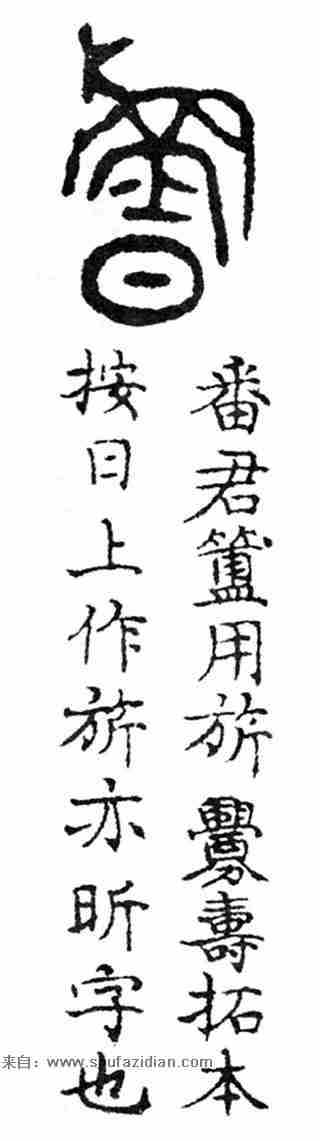 番君簠用旂釁壽拓本
按日上作旂亦昕字也
来自：www.shufazidian.com